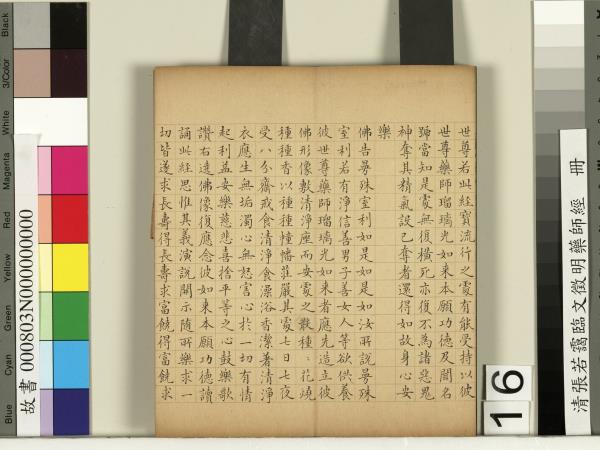 世尊若此經寶流行之處有能受持以彼
世尊藥師瑠璃光如來本願功德及聞名
號當知是處無復橫死亦復不為諸惡鬼
神奪其精氣設已奪者還得如故身心安
樂
佛告曼殊室利如是如是如汝所說曼殊
室利若有淨信善男子善女人等欲供養
彼世尊藥師瑠璃光如來者應先造立彼
佛形像敷清淨座而安處之散種〻花燒
種種香以種種幢幡莊嚴其處七日七夜
受八分齋戒食清淨食澡浴香潔著清淨
衣應生無垢濁心無怒害心於一切有情
起利益安樂慈悲喜捨平等之心鼓樂歌
讚右遶佛像復應念彼如來本願功德讀
誦此經思惟其義演說開示隨所樂求一
切皆遂求長壽得長壽求富饒得富饒求
清張若靄臨文徵明藥師經 冊
16
故書 000803N000000000
Black
3/Color
White
Magenta
Red
Yellow
Green
Cyan
Blue